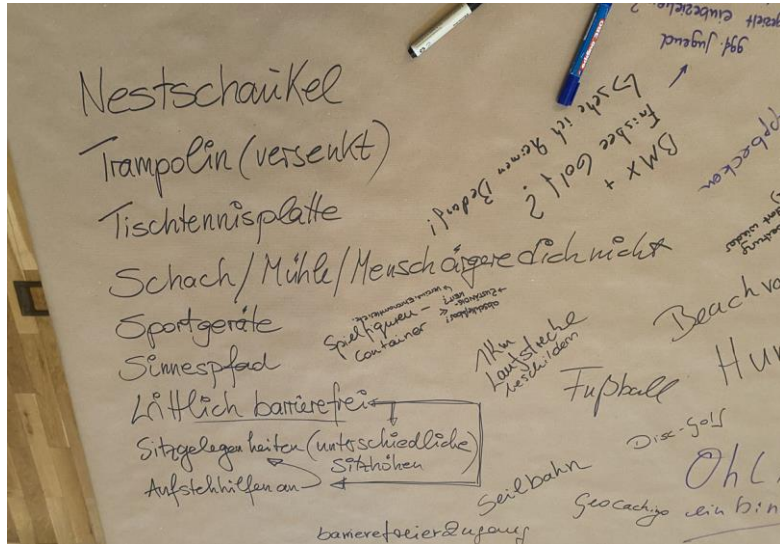 Nestschaukel
Trampolin (versenkt)
Tischtennisplatte
Schach / Mühle / Mensch ärgere dich nicht
Sportgeräte
Sinnespfad
barrierefrei
Sitzgelegenheiten (unterschiedliche)
Sitzhöhen
Aufstehhilfen an
barrierefreier Zugang
Spielfiguren-
Container
1km
Laufstrecke
beschildern
Fußball
Beachvo
Hun
Disc-Golf
Seilbahn
Geocaching
Ohl
einbin
BMX +
Frisbee Golf?
↳ sehe ich keinen Bedarf!
ggf. Jugend
gezielt einbeziehen
?
ppbecken